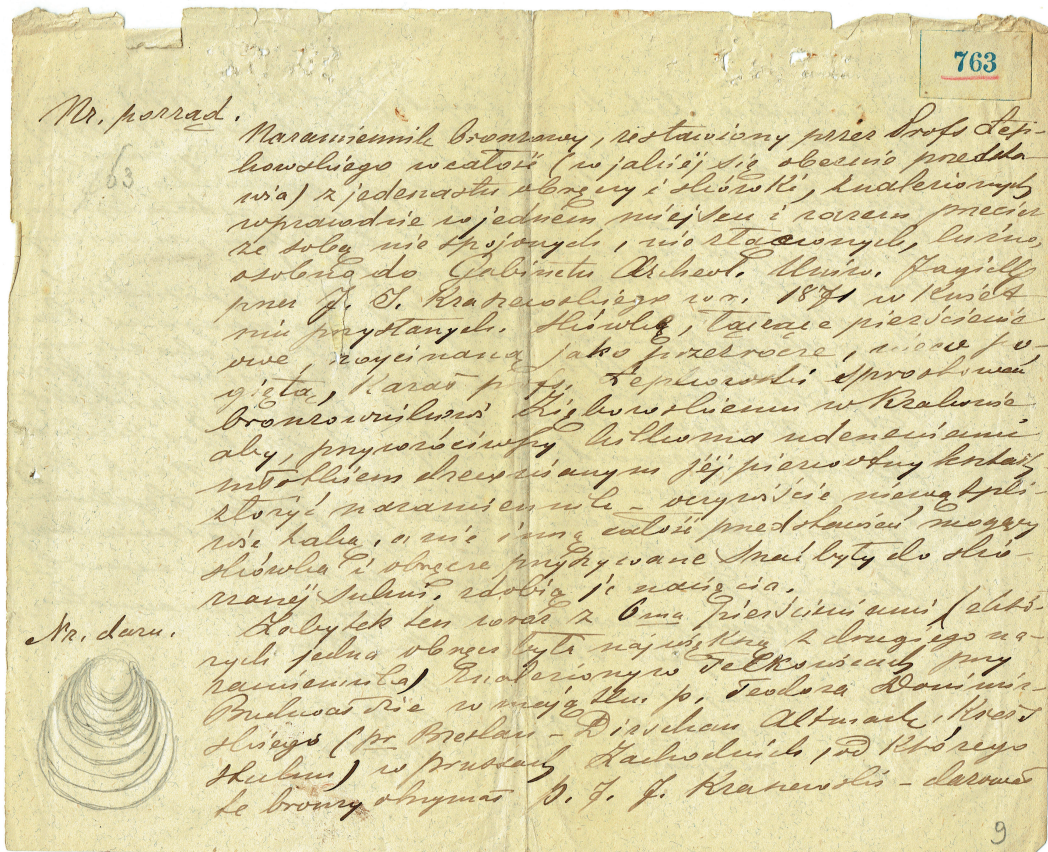 763
Nr. porząd.
63
Naramiennik bronzowy, zestawiony przez Profs Łep-
kowskiego w całość (w jakiéj się obecnie przedsta-
wia) z jedenastu obręczy i skówki, znalezionych
wprawdzie w jedném miejscu i razem przecież
ze sobą nie spojonych, nie złączonych, luźno,
osobno do Gabinetu Archeol. Uniw. Jagiell
przez J. I. Kraszewskiego w r. 1871 w Kwiet
niu przysłanych. Skówkę, łączącą pierścienie
owe, wycinaną jako przezrocze, nieco po-
giętą, Kazał profs. Łepkowski sprostować
bronzownikowi Ziębowskiemu w Krakowie
aby, przywróciwszy kilkoma uderzeniami
młotkiem drewnianym jéj pierwotny kształt
złożyć naramiennik – oczywiście niewątpli-
wie taką, a nie inną całość przedstawiać mogący
skówka i obręcze przyszywane snać były do skó-
rzanéj sukni. zdobią je nacięcia.
Nr. daru.
Zabytek ten wraz z 6ma pierścieniami (z któ-
rych jedna obręcz była największą z drugiego na-
ramiennika) znaleziony w Telkowicach przy
Budwałdzie w majątku p. Teodora Donimir-
skiego (pr Breslau – Dirschau Altmark, Kreis
Stuhm) w prusach Zachodnich, od Którego
te bronzy otrzymał p. J. J. Kraszewski – darował
9